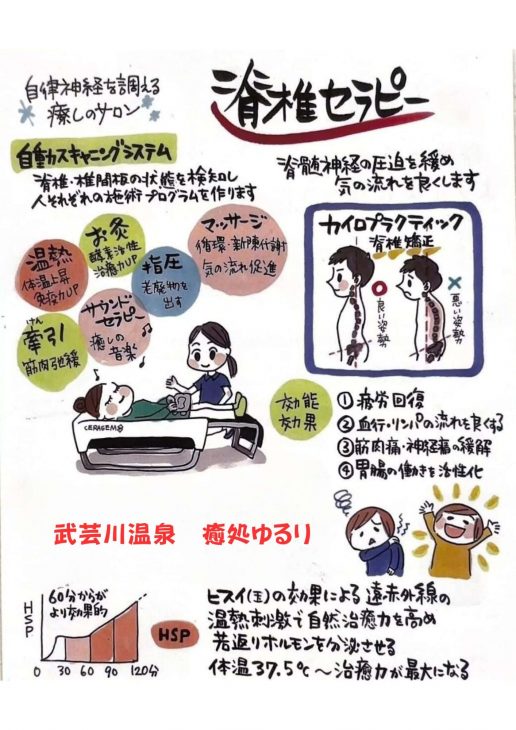 自律神経を調える
癒しのサロン
脊椎セラピー
自動スキャニングシステム
脊椎・椎間板の状態を検知し
人それぞれの施術プログラムを作ります
脊髄神経の圧迫を緩め
気の流れを良くします
温熱
体温上昇
免疫力UP
お灸
酵素活性
治癒力UP
指圧
老廃物を
出す
マッサージ
循環・新陳代謝
気の流れ促進
けん
牽引
筋肉弛緩
サウンド
セラピー
癒しの
音楽
カイロプラクティック
脊椎矯正
良い姿勢
悪い姿勢
CERAGEM
効能
効果
①疲労回復
②血行・リンパの流れを良くする
③筋肉痛・神経痛の緩解
④胃腸の働きを活性化
武芸川温泉 癒処ゆるり
HSP
60分からが
より効果的
0 30 60 90 120分
HSP
ヒスイ(玉)の効果による遠赤外線の
温熱刺激で自然治癒力を高め
若返りホルモンを分泌させる
体温37.5℃～治癒力が最大になる